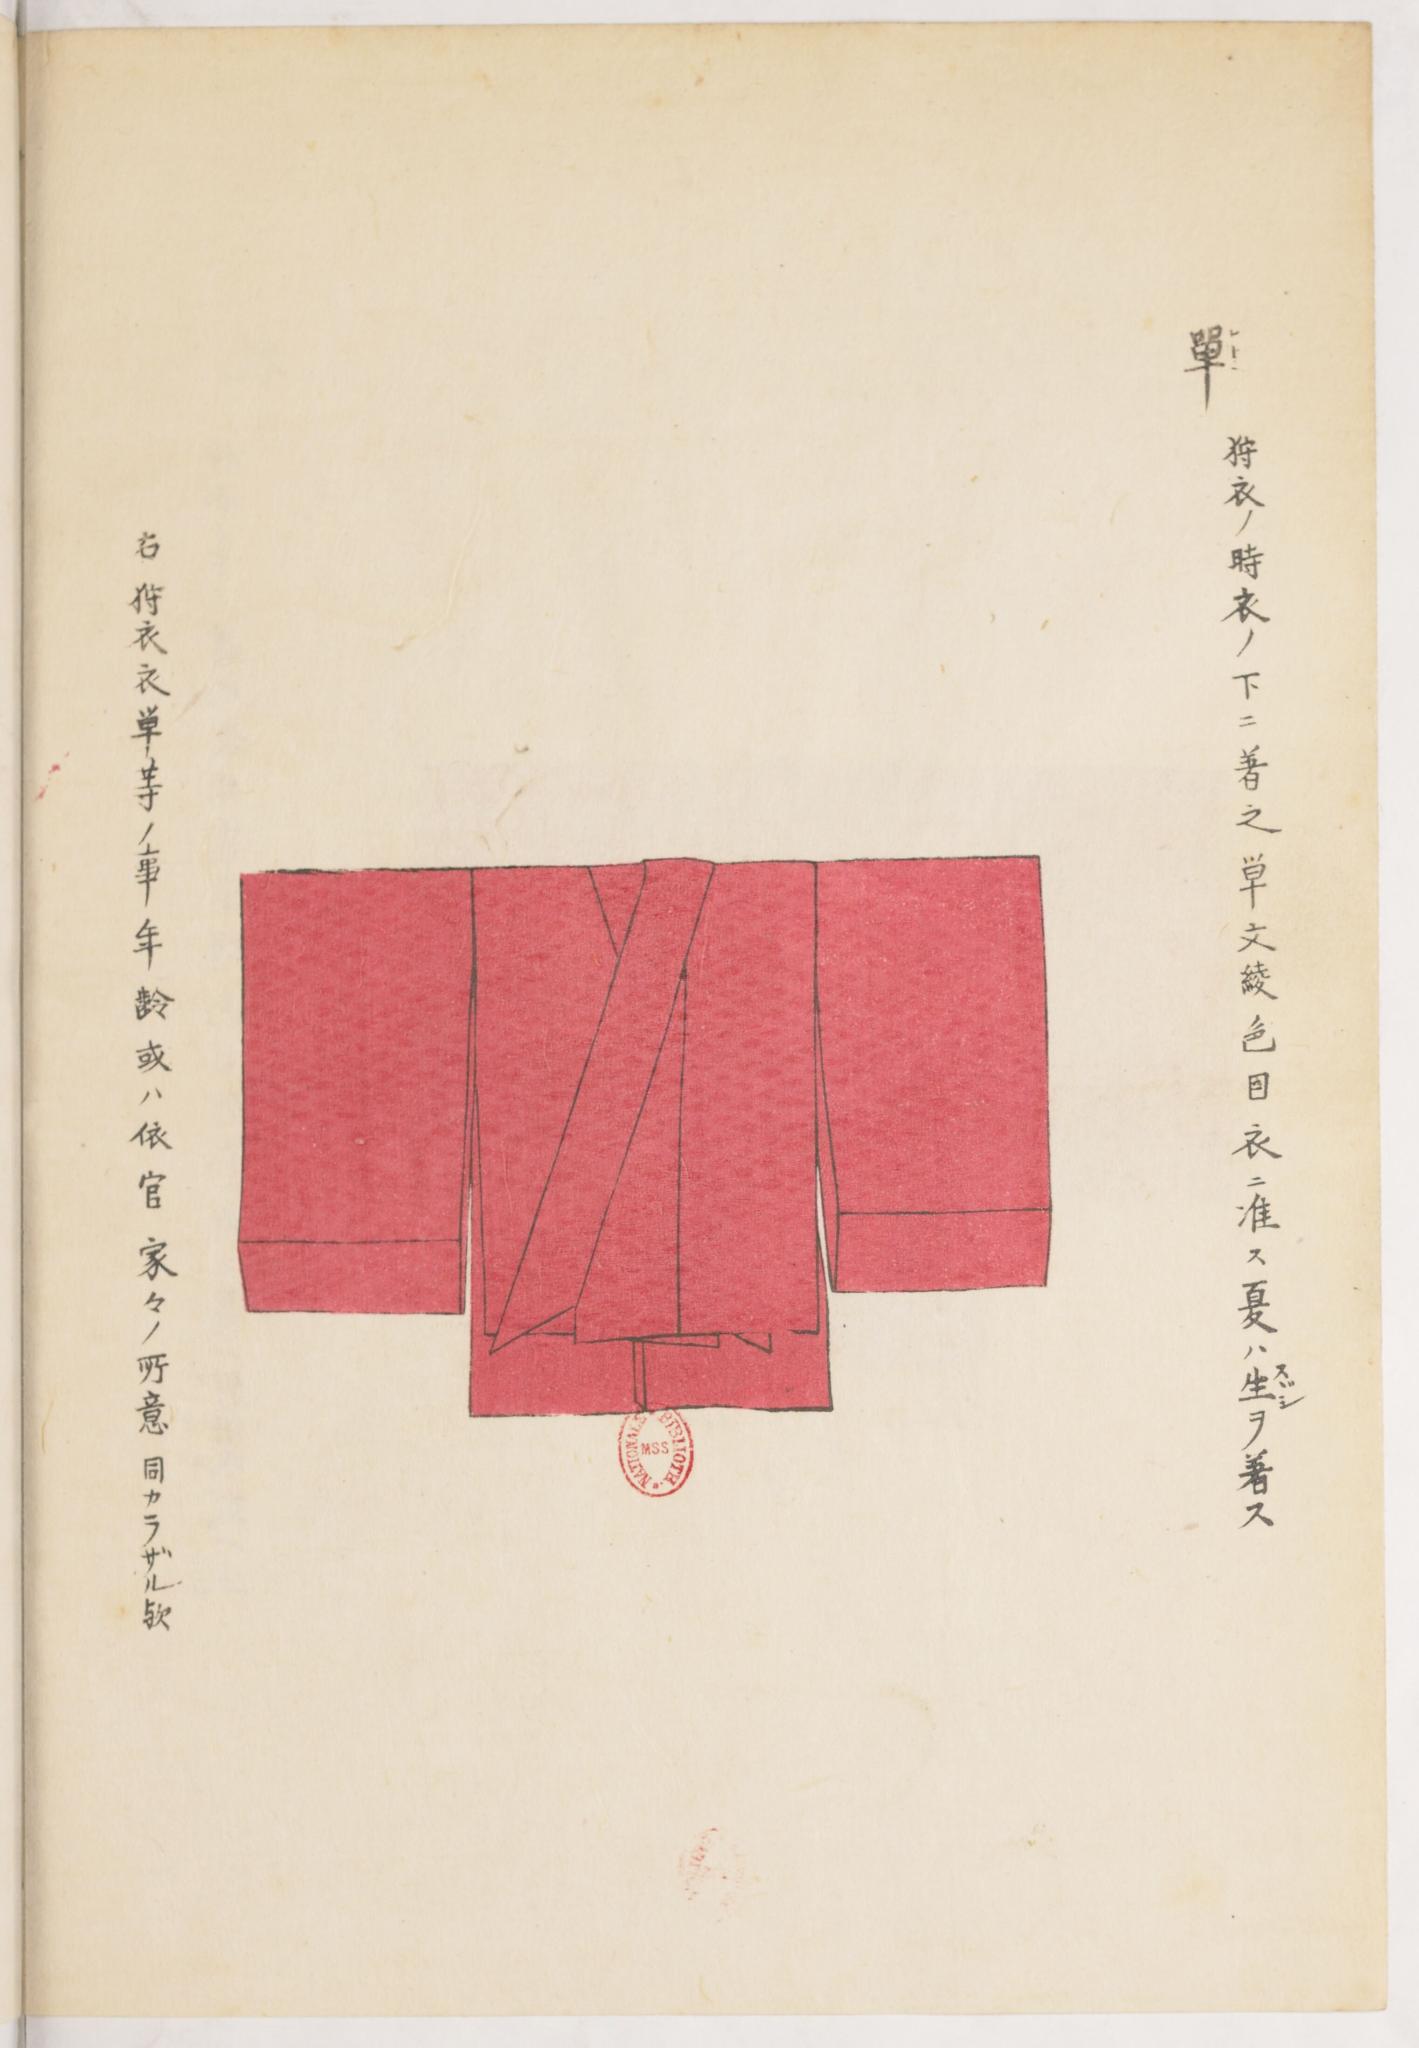 單
ヒトヘ
狩衣ノ時衣ノ下ニ著之単文綾色目衣ニ准ス夏ハ生ヲ著ス
スヾシ
右狩衣衣単等ノ事年齢或ハ依官家々ノ所意同カラザル歟
BIBLIOTH. NATIONALE
MSS